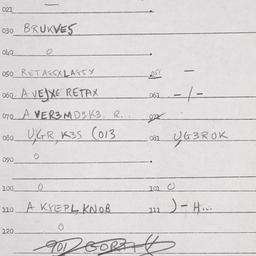 021 —
030 BRUKVES
040 0
050 RETASSXLASSY 051 —
060 A VEJXE RETAX 061 - / -
070 A VER3MDSK3. R... 072
080 UJGR, K3S (013 081 UJG3ROK
090 0
100 0 101 0
110 A KYEPL, KNOB 111 ) - H...
120 0